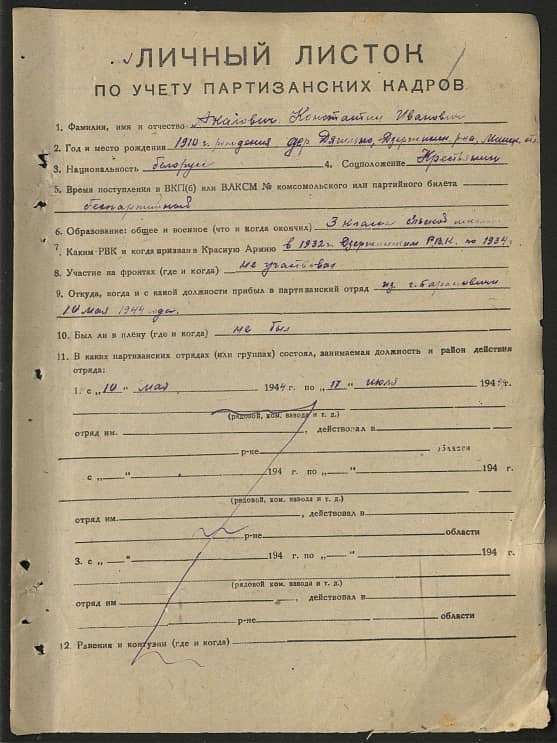 ЛИЧНЫЙ ЛИСТОК
ПО УЧЕТУ ПАРТИЗАНСКИХ КАДРОВ
1. Фамилия, имя и отчество Акалович Константин Иванович
2. Год и место рождения 1910 г. рождения дер. Дягильно, Дзержинск. р-на, Минск. обл.
3. Национальность белорус 4. Соцположение Крестьянин
5. Время поступления в ВКП(б) или ВЛКСМ № комсомольского или партийного билета
беспартийный
6. Образование: общее и военное (что и когда окончил) 3 класса сельской школы
7. Каким РВК и когда призван в Красную Армию в 1932 г. Дзержинским Р.В.К. по 1934 г.
8. Участие на фронтах (где и когда) не участвовал
9. Откуда, когда и с какой должности прибыл в партизанский отряд из г. Барановичи
10 мая 1944 года.
10. Был ли в плену (где и когда) не был
11. В каких партизанских отрядах (или группах) состоял, занимаемая должность и район действия
отряда:
1. с „10" мая 1944 г. по „17" июля 1944 г.
(рядовой, ком. взвода и т. д.)
отряд им. , действовал в
р-не области
с „ " 194 г. по „ " 194 г.
(рядовой, ком. взвода и т. д.)
отряд им. , действовал в
р-не области
3. с „ " 194 г. по „ " 194 г.
(рядовой, ком. взвода и т. д.)
отряд им. , действовал в
р-не области
12. Ранения и контузии (где и когда)